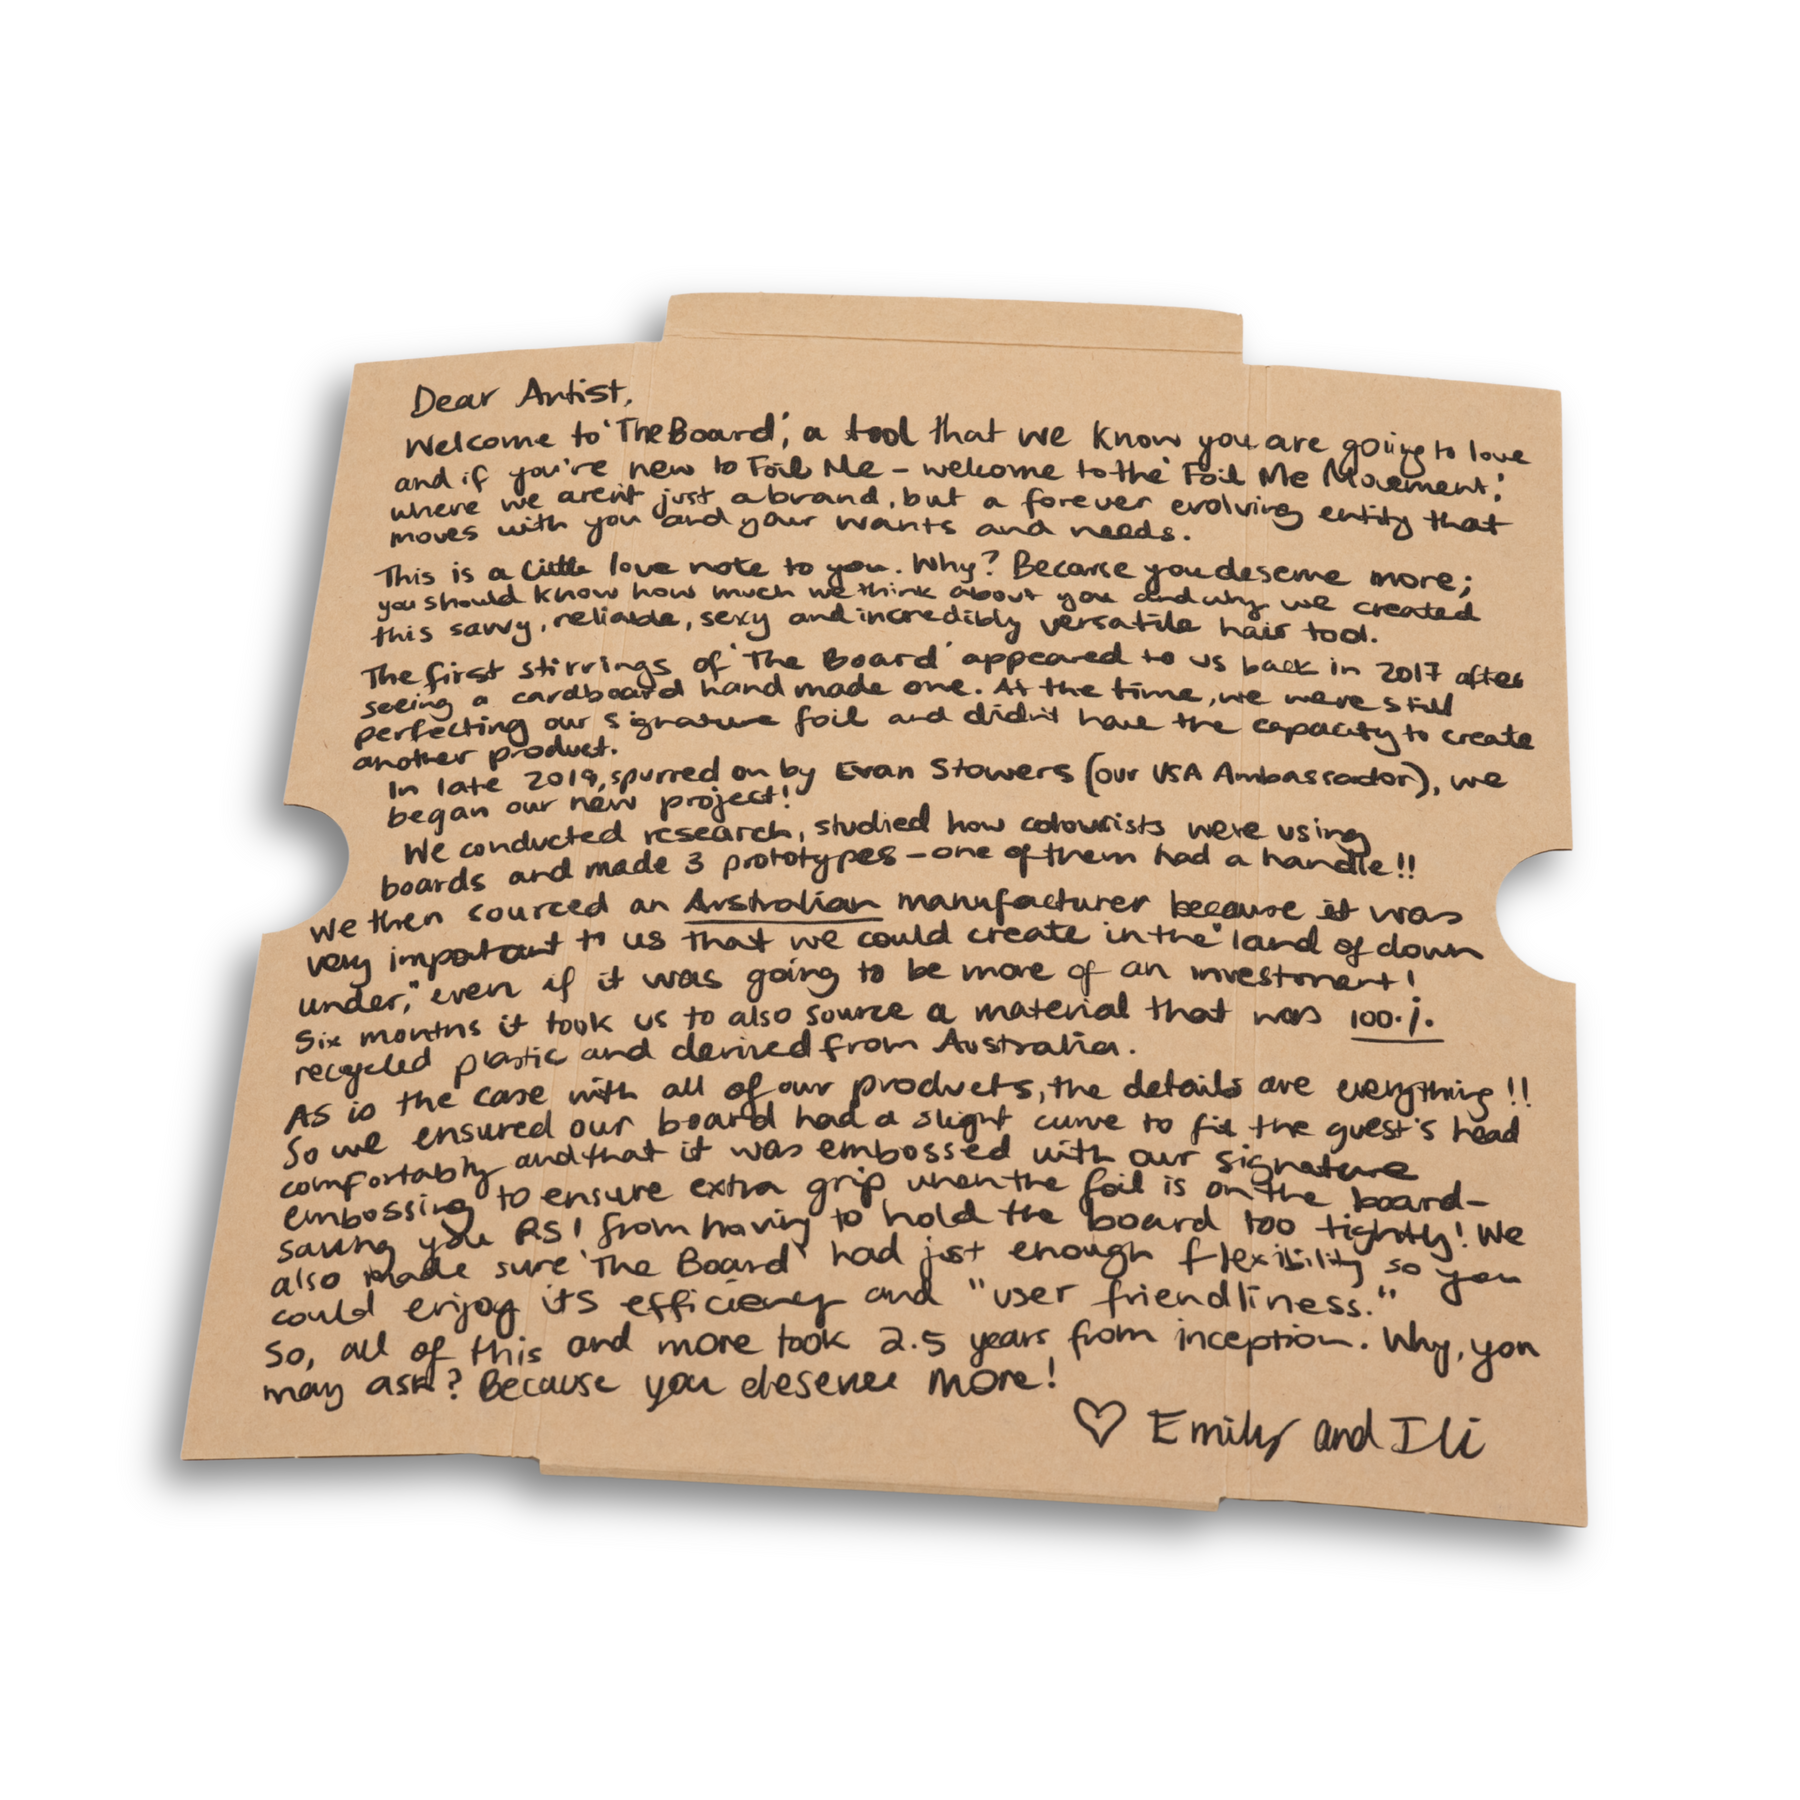 Dear Artist,
Welcome to 'The Board', a tool that we know you are going to love
and if you're new to Foil Me - welcome to the 'Foil Me Movement',
where we aren't just a brand, but a forever evolving entity that
moves with you and your wants and needs.
This is a little love note to you. Why? Because you deserve more;
you should know how much we think about you and why we created
this savvy, reliable, sexy and incredibly versatile hair tool.
The first stirrings of 'The Board' appeared to us back in 2017 after
seeing a cardboard hand made one. At the time, we were still
perfecting our signature foil and didn't have the capacity to create
another product.
In late 2019, spurred on by Evan Stowers (our USA Ambassador), we
began our new project!
We conducted research, studied how colourists were using
boards and made 3 prototypes - one of them had a handle!!
We then sourced an Australian manufacturer because it was
very important to us that we could create in the "land of down
under," even if it was going to be more of an investment!
Six months it took us to also source a material that was 100%
recycled plastic and derived from Australia.
As is the case with all of our products, the details are everything!!
So we ensured our board had a slight curve to fit the guest's head
comfortably and that it was embossed with our signature
embossing to ensure extra grip when the foil is on the board-
saving you RSI from having to hold the board too tightly! We
also made sure 'The Board' had just enough flexibility so you
could enjoy its efficiency and "user friendliness."
So, all of this and more took 2.5 years from inception. Why, you
may ask? Because you deserve more!
♡ Emily and Ili